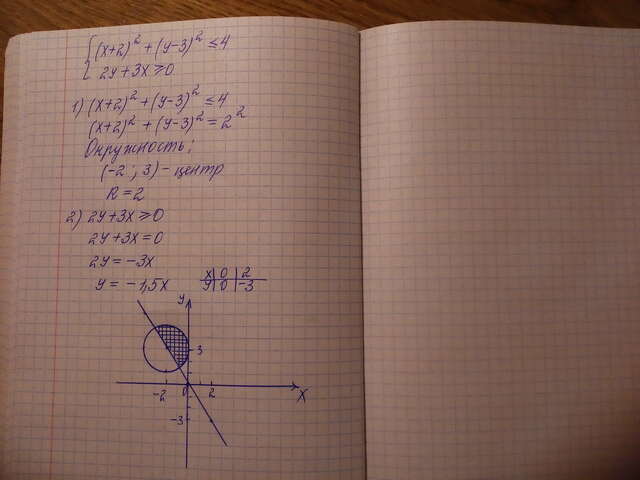 (x+2)² + (y-3)² ≤ 4
2y + 3x ≥ 0
1) (x+2)² + (y-3)² ≤ 4
(x+2)² + (y-3)² = 2²
Окружность;
(-2; 3) - центр
R = 2
2) 2y + 3x ≥ 0
2y + 3x = 0
2y = -3x
y = -1,5x
x 0 2
y 0 -3
y
3
-2 0 2 x
-3